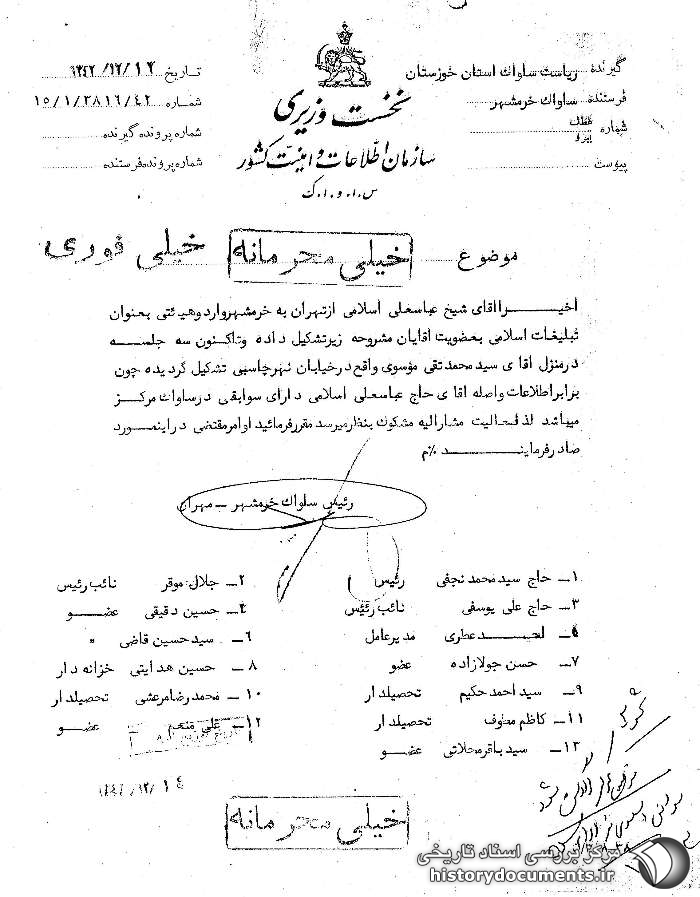 گیرنده ریاست ساواك استان خوزستان
فرستنده ساواك خرمشهر
شماره
پیوست
نخست وزیری
سازمان اطلاعات و امنیت کشور
س.ا.و.ا.ك
تاریخ ۱۳۴۲/۱۲/۱۲
شماره ۱۵/۱/۳۸۱۶/۴۲
شماره پرونده گیرنده
شماره پرونده فرستنده
موضوع خیلی محرمانه خیلی فوری
اخیـــرا اقای شیخ عباسعلی اسلامی ازتهران به خرمشهر وارد وهیئتی بعنوان
تبلیغات اسلامی بعضویت اقایان مشروحه زیرتشکیل داده وتاکنون سه جلســـه
درمنزل اقا ی سید محمد تقی مؤسوی واقع درخیابان نهرچاسبی تشکیل گردیده چون
برابراطلاعات واصله اقا ی حاج عباسعلی اسلامی دارای سوابقی درساواك مرکـــز
میباشد لذا فعالیت مشارالیه مشکوك بنظرمیرسد مقررفرمائید اوامرمقتضی دراینمورد
صادرفرماینـــد ٪م
رئیس ساواك خرمشهر – مهران
۱ــ حاج سید محمد نجفی رئیس
۲ــ جلال موقر نائب رئیس
۳ــ حاج علی یوسفی نائب رئیس
۴ــ حسین دقیقی عضـــو
احمـــد عطاری مدیرعامل
۶ــ سید حسین قاضی "
۷ــ حسن جولازاده عضو
۸ــ حسین هدایتی خزانه دار
۹ــ سید احمد حکیم تحصیلدار
۱۰ــ محمد رضا مرعشی تحصیلدار
۱۱ــ کاظم مطوف تحصیلدار
۱۲ــ علی منعم عضـــو
۱۳ــ سید باقر محلاتی عضـــو
خیلی محرمانه
مرکز بررسی اسناد تاریخی
historydocuments.ir